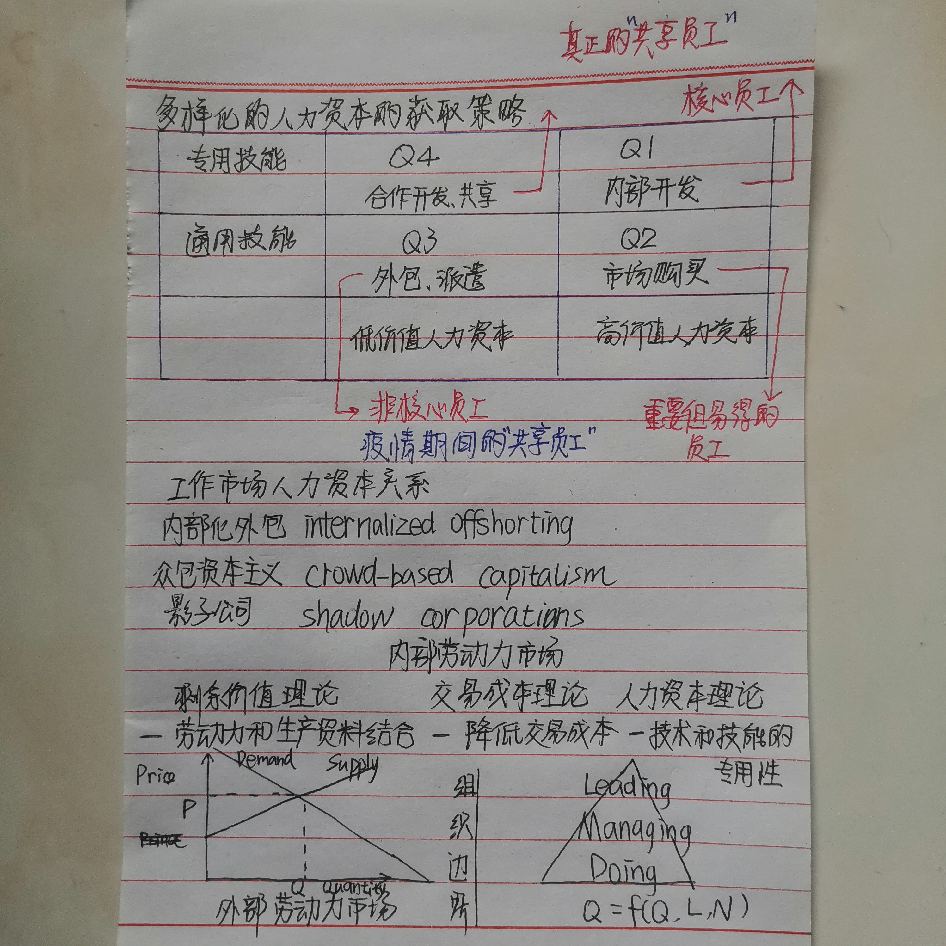 真正的"共享员工"
核心员工
多样化的人力资本的获取策略
专用技能 Q4 Q1
合作开发、共享 内部开发
通用技能 Q3 Q2
外包、派遣 市场购买
低价值人力资本 高价值人力资本
非核心员工 重要但易得的
员工
疫情期间的"共享员工"
工作市场人力资本关系
内部化外包 internalized offshorting
众包资本主义 crowd-based capitalism
影子公司 shadow corporations
内部劳动力市场
剩余价值理论 交易成本理论 人力资本理论
— 劳动力和生产资料结合 — 降低交易成本 — 技术和技能的
专用性
Demand Supply
Price
P
Q Quantity
外部劳动力市场
组
织
边
界
Leading
Managing
Doing
Q=f(Q,L,N)